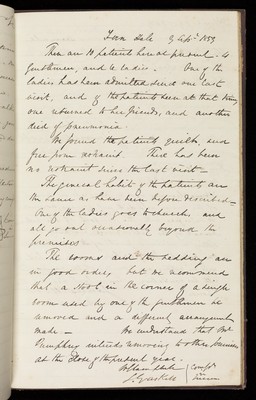 Fern Dale 9 Sept. 1859
There are 10 patients here at present – 4
gentlemen, and 6 ladies – One of the
ladies has been admitted since our last
visit, and of the patients seen at that time
one returned to his friends, and another
died of pneumonia –
We found the patients quiet, and
free from restraint. There has been
no restraint since the last visit –
The general habits of the patients are
the same as have been before described –
One of the ladies goes to church, and
all go out occasionally beyond the
premises –
The rooms and the bedding are
in good order, but we recommend
that a stool in the corner of a single
room used by one of the gentlemen be
removed and a different arrangement
made – We understand that Mr.
intends removing to other premises
at the close of the present year.